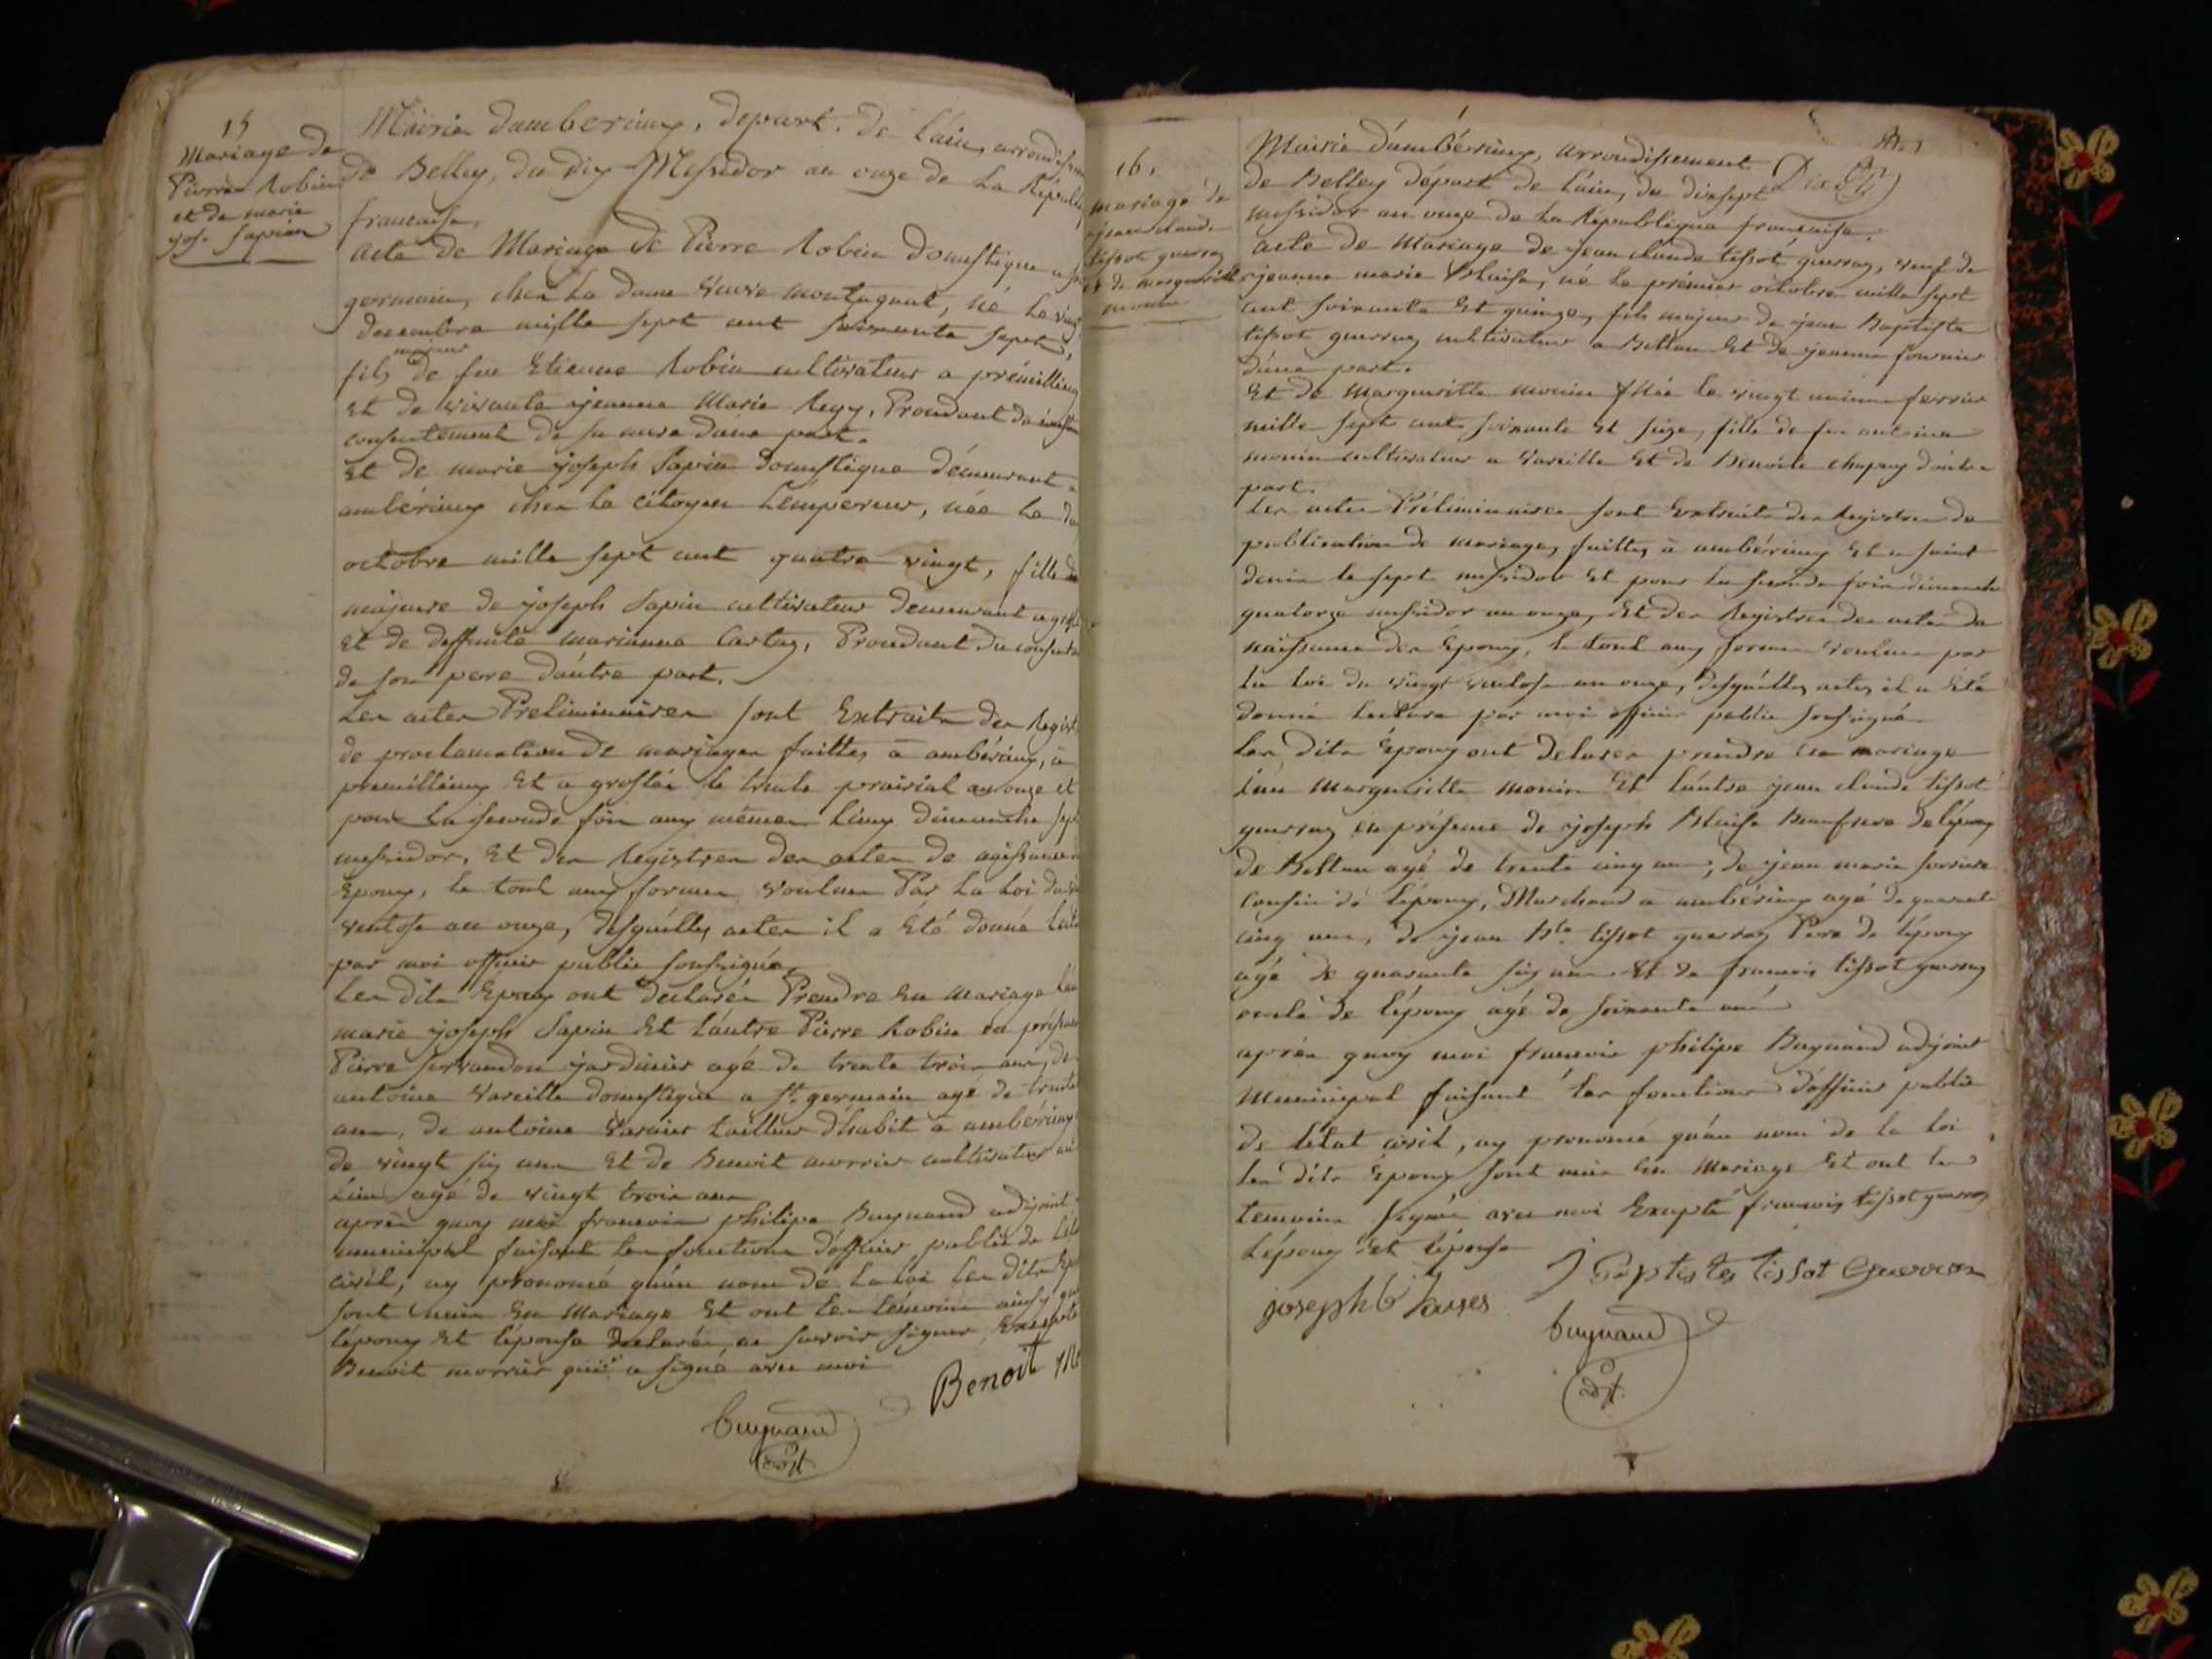 15
Mariage de
Pierre Robin
et de marie
jos. Sapin
Mairie dambérieux, depart. de l'ain, arrondissem
de Belley, du dix Messidor an onze de la Républi
francaise.
acte de Mariage de Pierre Robin domestique a st
germain, chez la dame veuve montagnat, né le vingt
decembre mille sept cent soixante sept,
fils majeur de feu Etienne Robin cultivateur a prémillieux
et de vivante jeanne Marie Regy, Procedant du
consentement de sa mere dune part.
et de marie joseph Sapin domestique démeurant a
ambérieux chez le citoyen Lempereur, née le
octobre mille sept cent quatre vingt, fille
majeure de joseph Sapin cultivateur demeurant a
et de deffunte marianne Cartaz, Procedant du consente
de son pere d'autre part.
Les actes Preliminaires sont Extraits des Regist
de proclamation de mariages faittes à ambérieux, à
premillieux et a groslée le trente prairial an onze et
pour la seconde fois aux mêmes lieux dimanche sept
messidor, et des Registres des actes de naissance
Epoux, le tout aux formes voulues Par la Loi du
ventose an onze, desquelles actes il a été donné lect
par moi officier public soussigné.
Les dits Epoux ont declarés Prendre en mariage l'un
marie joseph Sapin et l'autre Pierre Robin en présence
Pierre Servandon jardinier agé de trente trois ans, de
antoine Vareille domestique a st. germain agé de trente
ans, de antoine Varnier tailleur d'habit à ambérieux
de vingt six ans et de Benoit morrier cultivateur
agé de vingt trois ans
après quoy moi francois philipe Buynand adjoint
municipal faisant les fonctions d'officier public de l'état
civil, ay prononcé qu'au nom de la loi les dits Epoux
sont unis en Mariage et ont les témoins ainsy que
l'époux et l'épouse declarés ne savoir signer, Excepté
Benoit morrier qui a signé avec moi
Benoit
buynand
adjt
16.
mariage de
jean claude
tissot guerraz
et de margueritte
monin
Mairie d'ambérieux, arrondissement
de Belley départ de l'ain, du dixsept
messidor an onze de la République francaise.
acte de Mariage de jean claude tissot guerraz, veuf de
jeanne marie Blaise, né le prémier octobre mille sept
cent soixante et quinze, fils majeur de jean Baptiste
tissot guerraz cultivateur a Bettan et de jeanne fournier
d'une part.
et de Margueritte monin née le vingt unieme fevrier
mille sept cent soixante et seize, fille de feu antoine
monin cultivateur a Vareille et de Benoite chapuy d'autre
part.
Les actes Préliminaires sont Extraits des Registres de
publication de mariages faittes à ambérieux et a saint
denis le sept messidor et pour la seconde fois dimanche
quatorze messidor an onze, et des Registres des actes de
naissance des Epoux, le tout aux formes voulues par
la loi du vingt ventose an onze, desquelles actes il a été
donné lecture par moi officier public soussigné
les dits Epoux ont declarés prendre en mariage
l'un Marguerite monin et l'autre jean claude tissot
guerraz en présence de joseph Blaise Beaufrere de l'époux
de Bettan agé de trente cinq ans, de jean marie
cousin de l'époux, Marchand a ambérieux agé de quarante
cinq ans, de jean Bte tissot guerraz Pere de l'époux
agé de quarante six ans et de francois tissot guerraz
oncle de l'époux agé de soixante ans
après quoy moi francois philipe Buynand adjoint
Municipal faisant les fonctions d'officier public
de l'état civil, ay prononcé qu'au nom de la loi
les dits Epoux sont unis en Mariage et ont les
temoins signé avec moi Excepté francois tissot guerraz
l'époux et l'épouse
J Baptistes Tissot Guerras
joseph blaises
buynand
adjt.